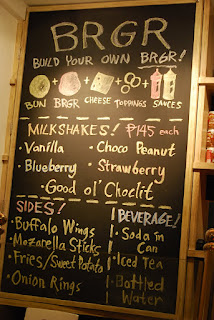 BRGR
BUILD YOUR OWN BRGR!
+ + + +
BUN BRGR CHEESE TOPPINGS SAUCES
MILKSHAKES! ₱145 each
• Vanilla • Choco Peanut
• Blueberry • Strawberry
• Good ol' Choclit
SIDES!
• Buffalo Wings
• Mozarella Sticks
• Fries/Sweet Potato
• Onion Rings
BEVERAGE!
• Soda in
Can
• Iced Tea
• Bottled
Water